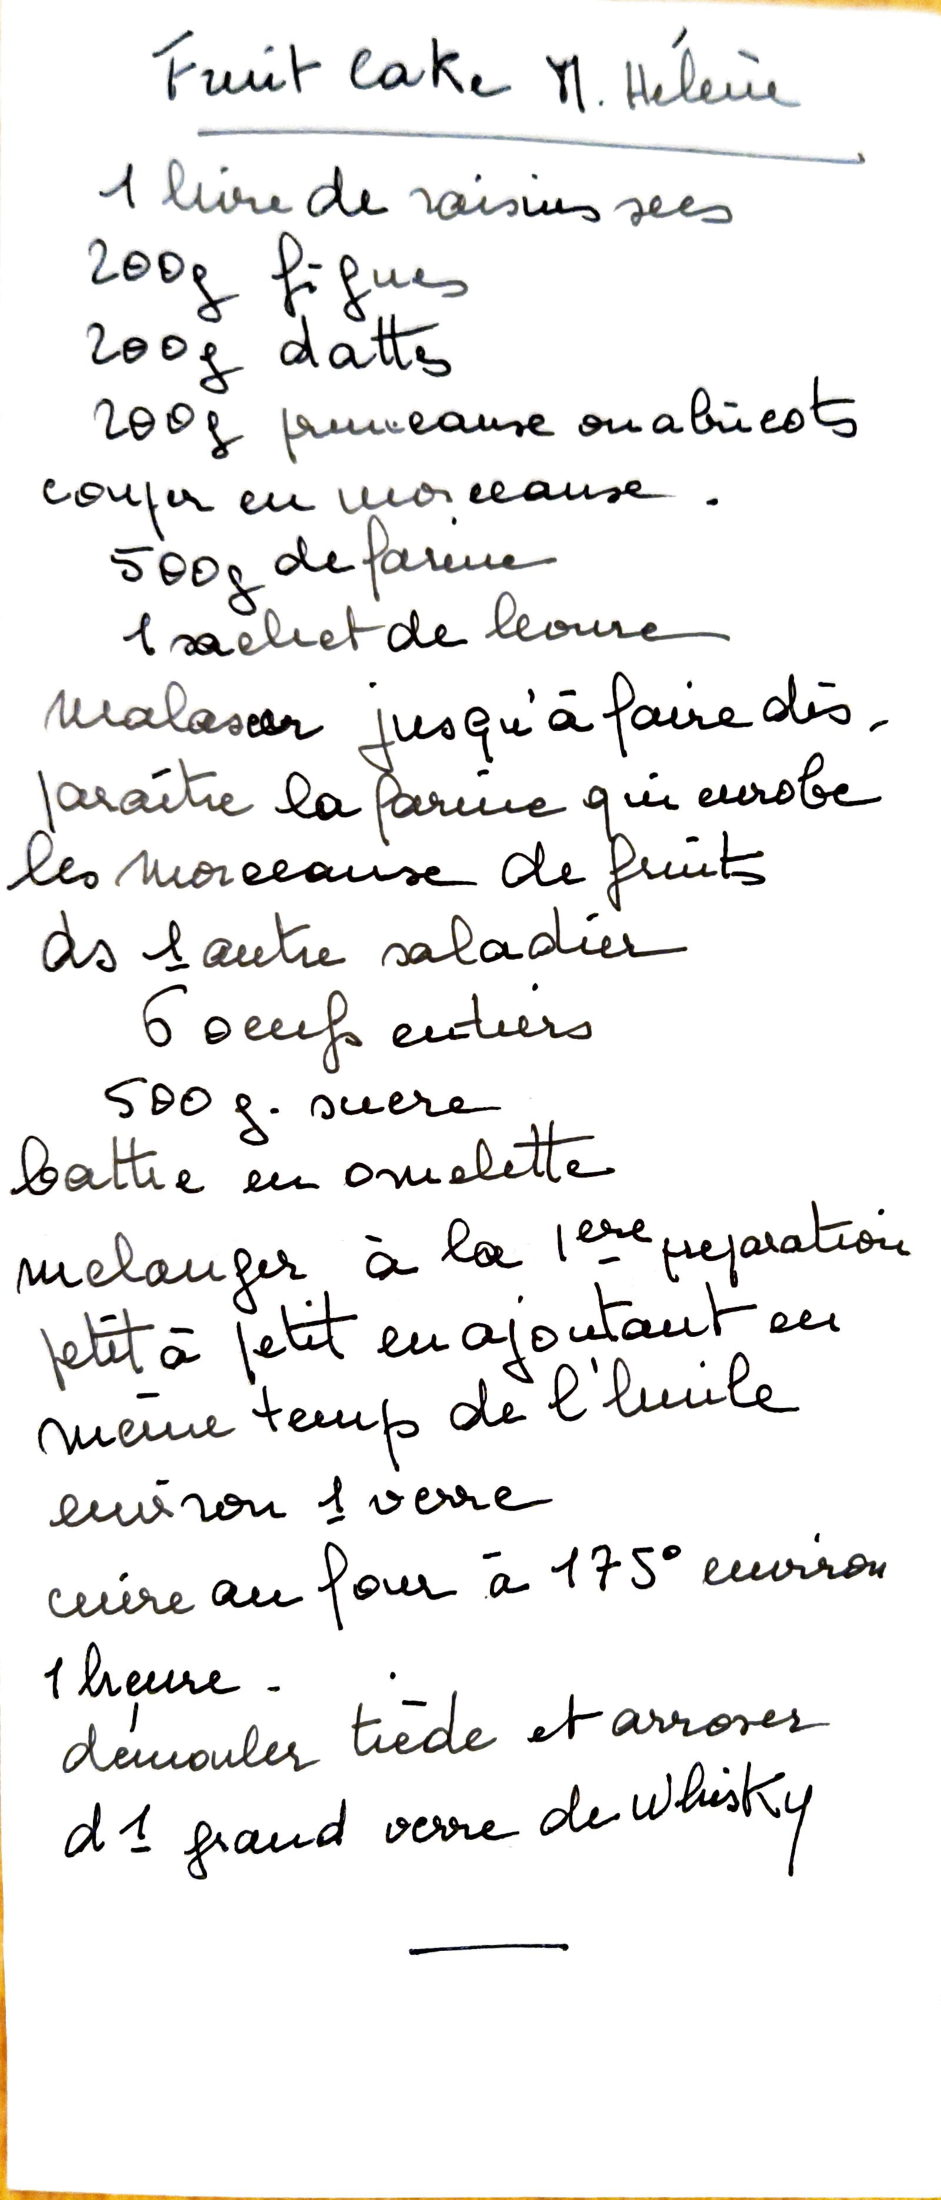 Fruit Cake M. Hélène
1 livre de raisins secs
200g figues
200g dattes
200g pruneaux ou abricots
couper en morceaux.
500g de farine
1 sachet de levure
Malaxer jusqu'à faire dis-
paraître la farine qui enrobe
les morceaux de fruits
ds 1 autre saladier
6 oeufs entiers
500 g. sucre
battre en omelette
melanger à la 1ere preparation
petit à petit en ajoutant en
même temps de l'huile
environ 1 verre
cuire au four à 175° environ
1 heure -
démouler tiède et arroser
d 1 grand verre de Whisky